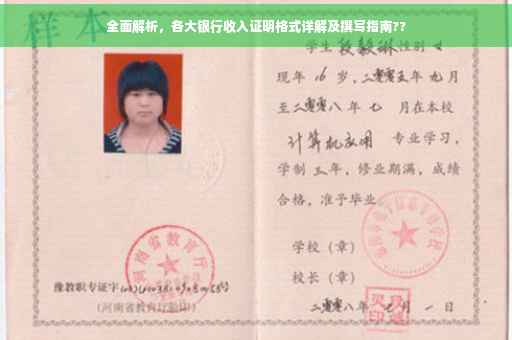 全面解析，各大银行收入证明格式详解及撰写指南??
样本
学生 段毅琳 性别 女
现年 16 岁，二零零五年 九月
至二零零八年 七 月在本校
计算机应用 专业学习，
学制 三年，修业期满，成绩
合格，准予毕业
学校（章）
校长（章）
二零零八年 七月 一 日
河南省教育厅
豫教职专证字
（河南省教育厅验印）